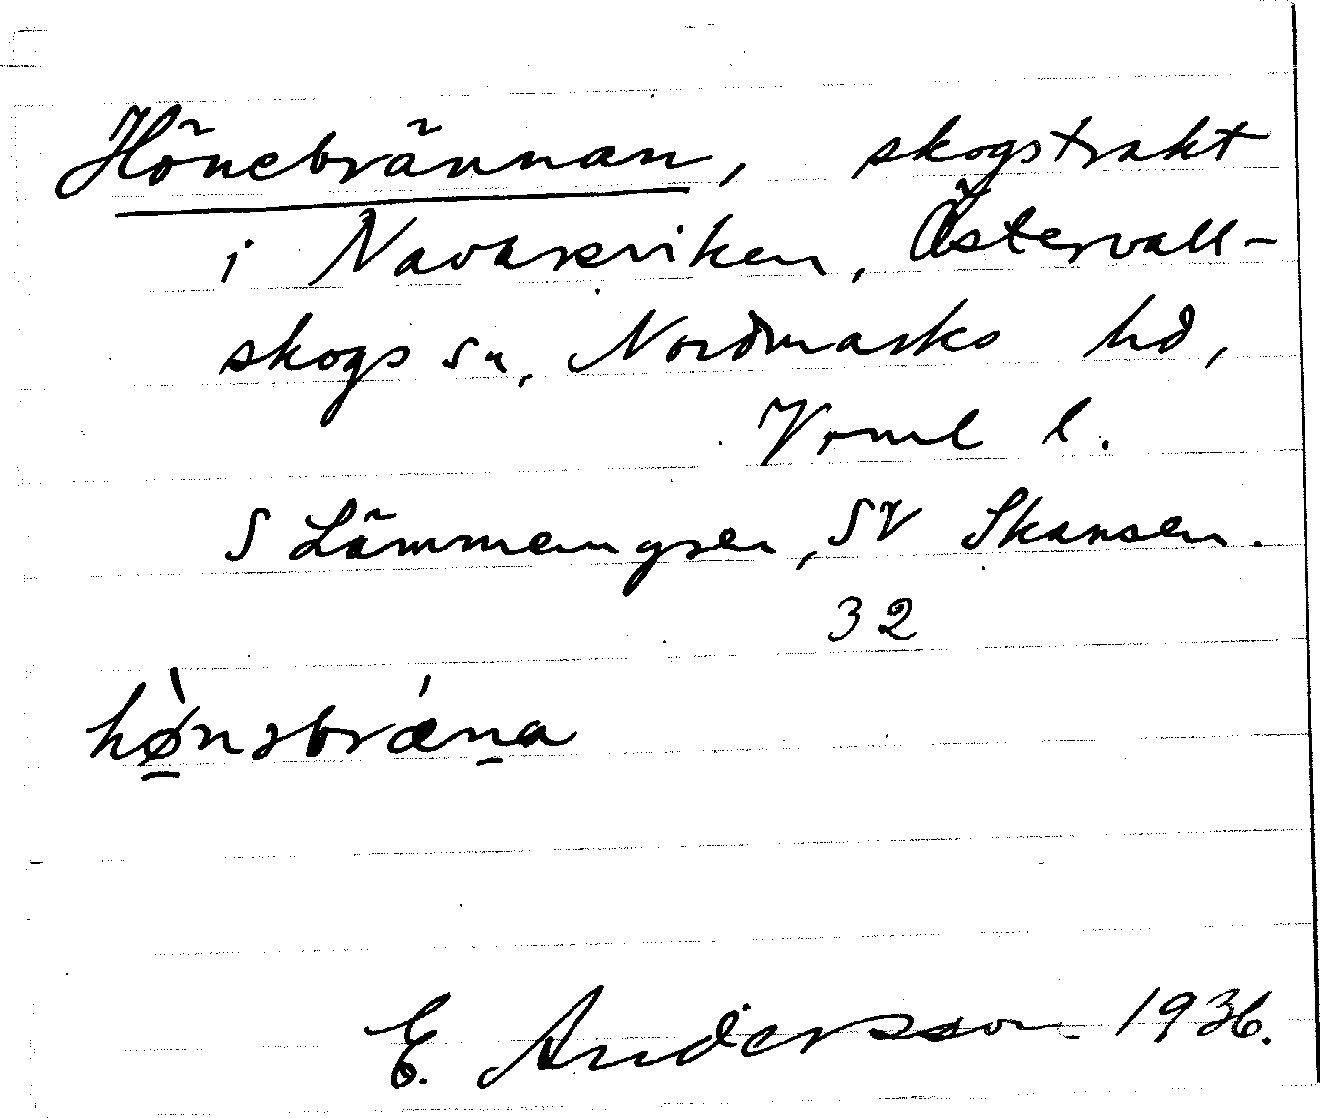 Hönebrännan, skogstrakt
i Navarsviken, Östervall-
skogs sn, Nordmarks hd,
Vrml l.
S Lämmenugren, SV Skansen.
32
hø̀nəbrǽna
E. Andersson 1936.